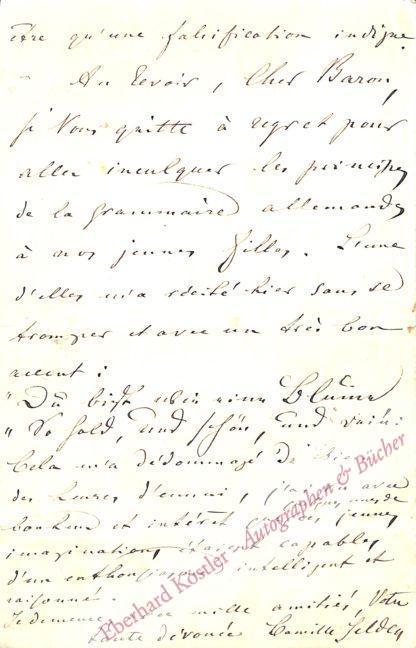 être qu'une falsification indigne
- Au revoir, Cher Baron,
je Vous quitte à regret pour
aller inculquer les principes
de la Grammaire allemande
à nos jeunes filles. L'une
d'elles m'a récité hier sans se
tromper et avec un très bon
accent :
"Du bist wie eine Blume
"So hold, und schön, und rein:
Cela m'a dédommagé de
des heures d'ennui, j'ai vu avec
bonheur et intérêt que ces jeunes
imaginations étaient capables
d'un enthousiasme intelligent et
raisonné.
Je demeure mille amitiés, Votre
toute dévouée Camille Selden
Eberhard Köstler - Autographen & Bücher